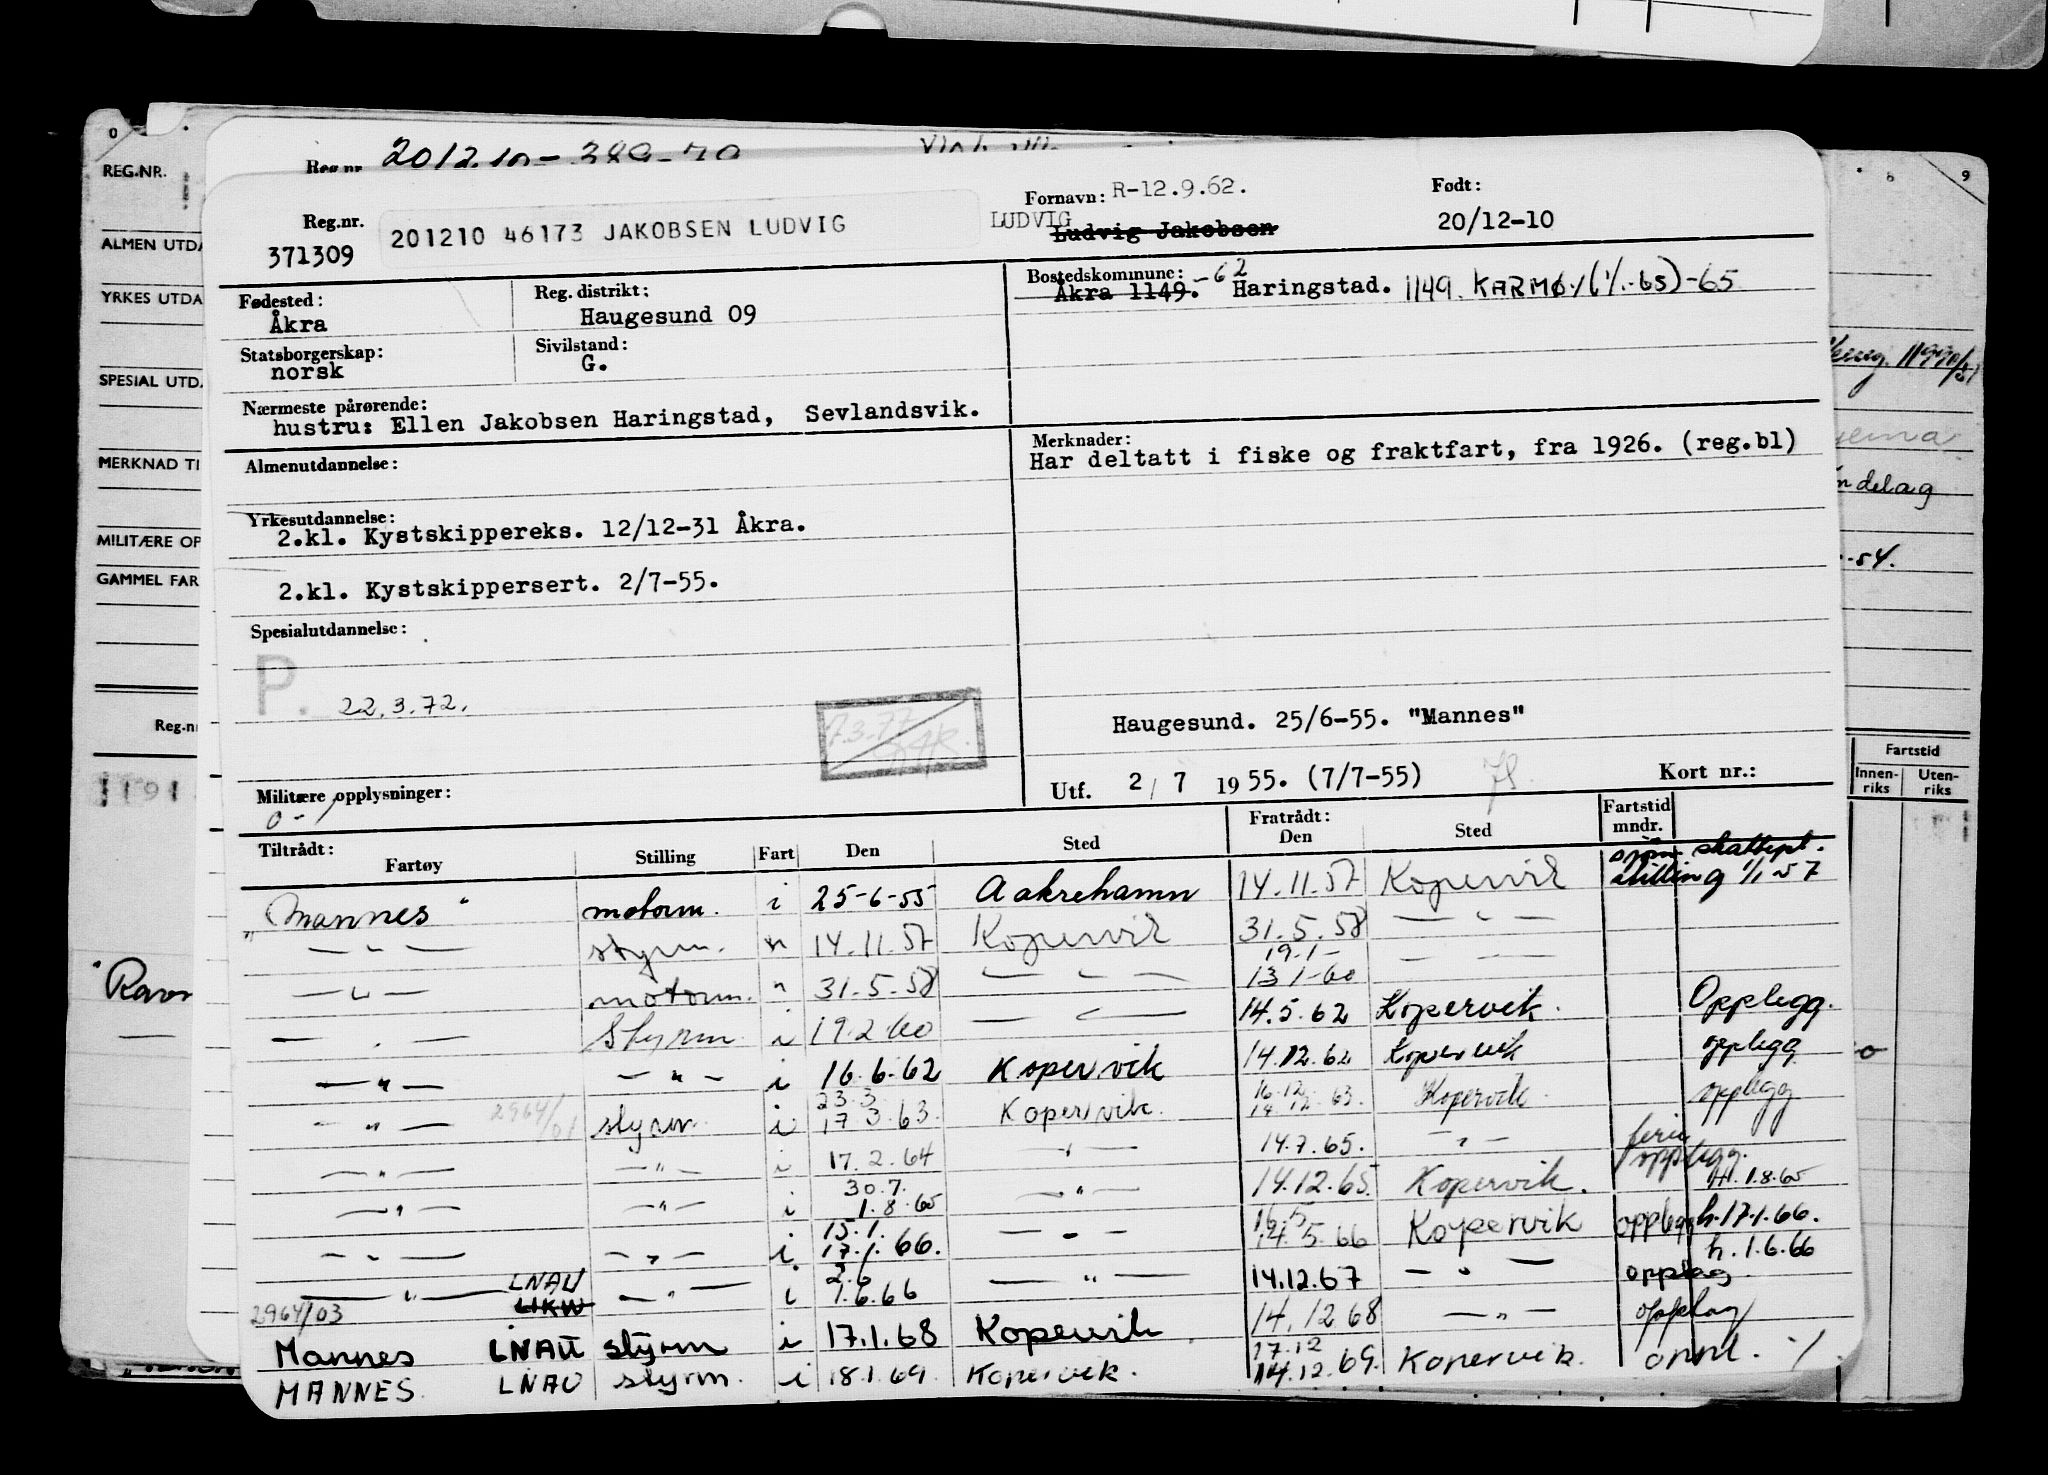 REG.NR.
ALMEN UTDA
YRKES UTDA
SPESIAL UTDA
MERKNAD TI
MILITÆRE OP
GAMMEL FAR
Reg.nr
Reg.nr. 201210-
Reg.nr. 371309
201210 46173 JAKOBSEN LUDVIG
Fornavn: R-12.9.62.
LUDVIG Ludvig Jakobsen
Født: 20/12-10
Fødested: Åkra
Reg. distrikt: Haugesund 09
Bostedskommune: Åkra 1149. -62 Haringstad. 1149. KARMØY (1/1-65)-65
Statsborgerskap: norsk
Sivilstand: G.
Nærmeste pårørende:
hustru: Ellen Jakobsen Haringstad, Sevlandsvik.
Almenutdannelse:
Merknader:
Har deltatt i fiske og fraktfart, fra 1926. (reg.bl)
Yrkesutdannelse:
2.kl. Kystskippereks. 12/12-31 Åkra.
2.kl. Kystskippersert. 2/7-55.
Spesialutdannelse:
P. 22.3.72.
Haugesund. 25/6-55. "Mannes"
Militære opplysninger:
0 -
Utf. 2/7 1955. (7/7-55)
Kort nr.:
Tiltrådt: Fartøy Stilling Fart Den Sted Fratrådt: Den Sted Fartstid mndr.
"Mannes" motorm. i 25-6-55 Aakrehamn 14.11.57 Kopervik sjøm skattepl. stilling 1/1-57
— " — styrm. " 14.11.57 Kopervik 31.5.58 — " —
— " — motorm. " 31.5.58 — " — 19.1- 13.1-60 — —
— " — Styrm. i 19.2.60 — " — 14.5.62 Kopervik. Opplegg.
— " — — " — i 16.6.62 Kopervik 14.12.62 Kopervik opplegg
— " — 2964/01 styrm. i 23.3. 17.3.63. Kopervik. 16.12 14.12.63. Kopervik. opplegg
— " — — " — i 17.2.64 — " — 14.7.65. — " — ferie
— " — — " — i 30.7. 1.8.65 — " — 14.12.65. Kopervik. opplegg. h. 1.8.65
— " — — " — i 15.1. 17.1.66. — " — 16.5 14.5.66 Kopervik opplegg h.17.1.66.
— " — LNAU LIKW — " — i 2.6 1.6.66 — " — 14.12.67 — " — opplag h. 1.6.66
2964/03
Mannes LNAU styrm i 17.1.68 Kopervik 14.12.68 — " — opplag
MANNES. LNAU styrm. i 18.1.69. Kopervik. 17.12 14.12.69. Kopervik. onnl. ·/.
Fartstid
Innen-riks Uten-riks
delag
-54.